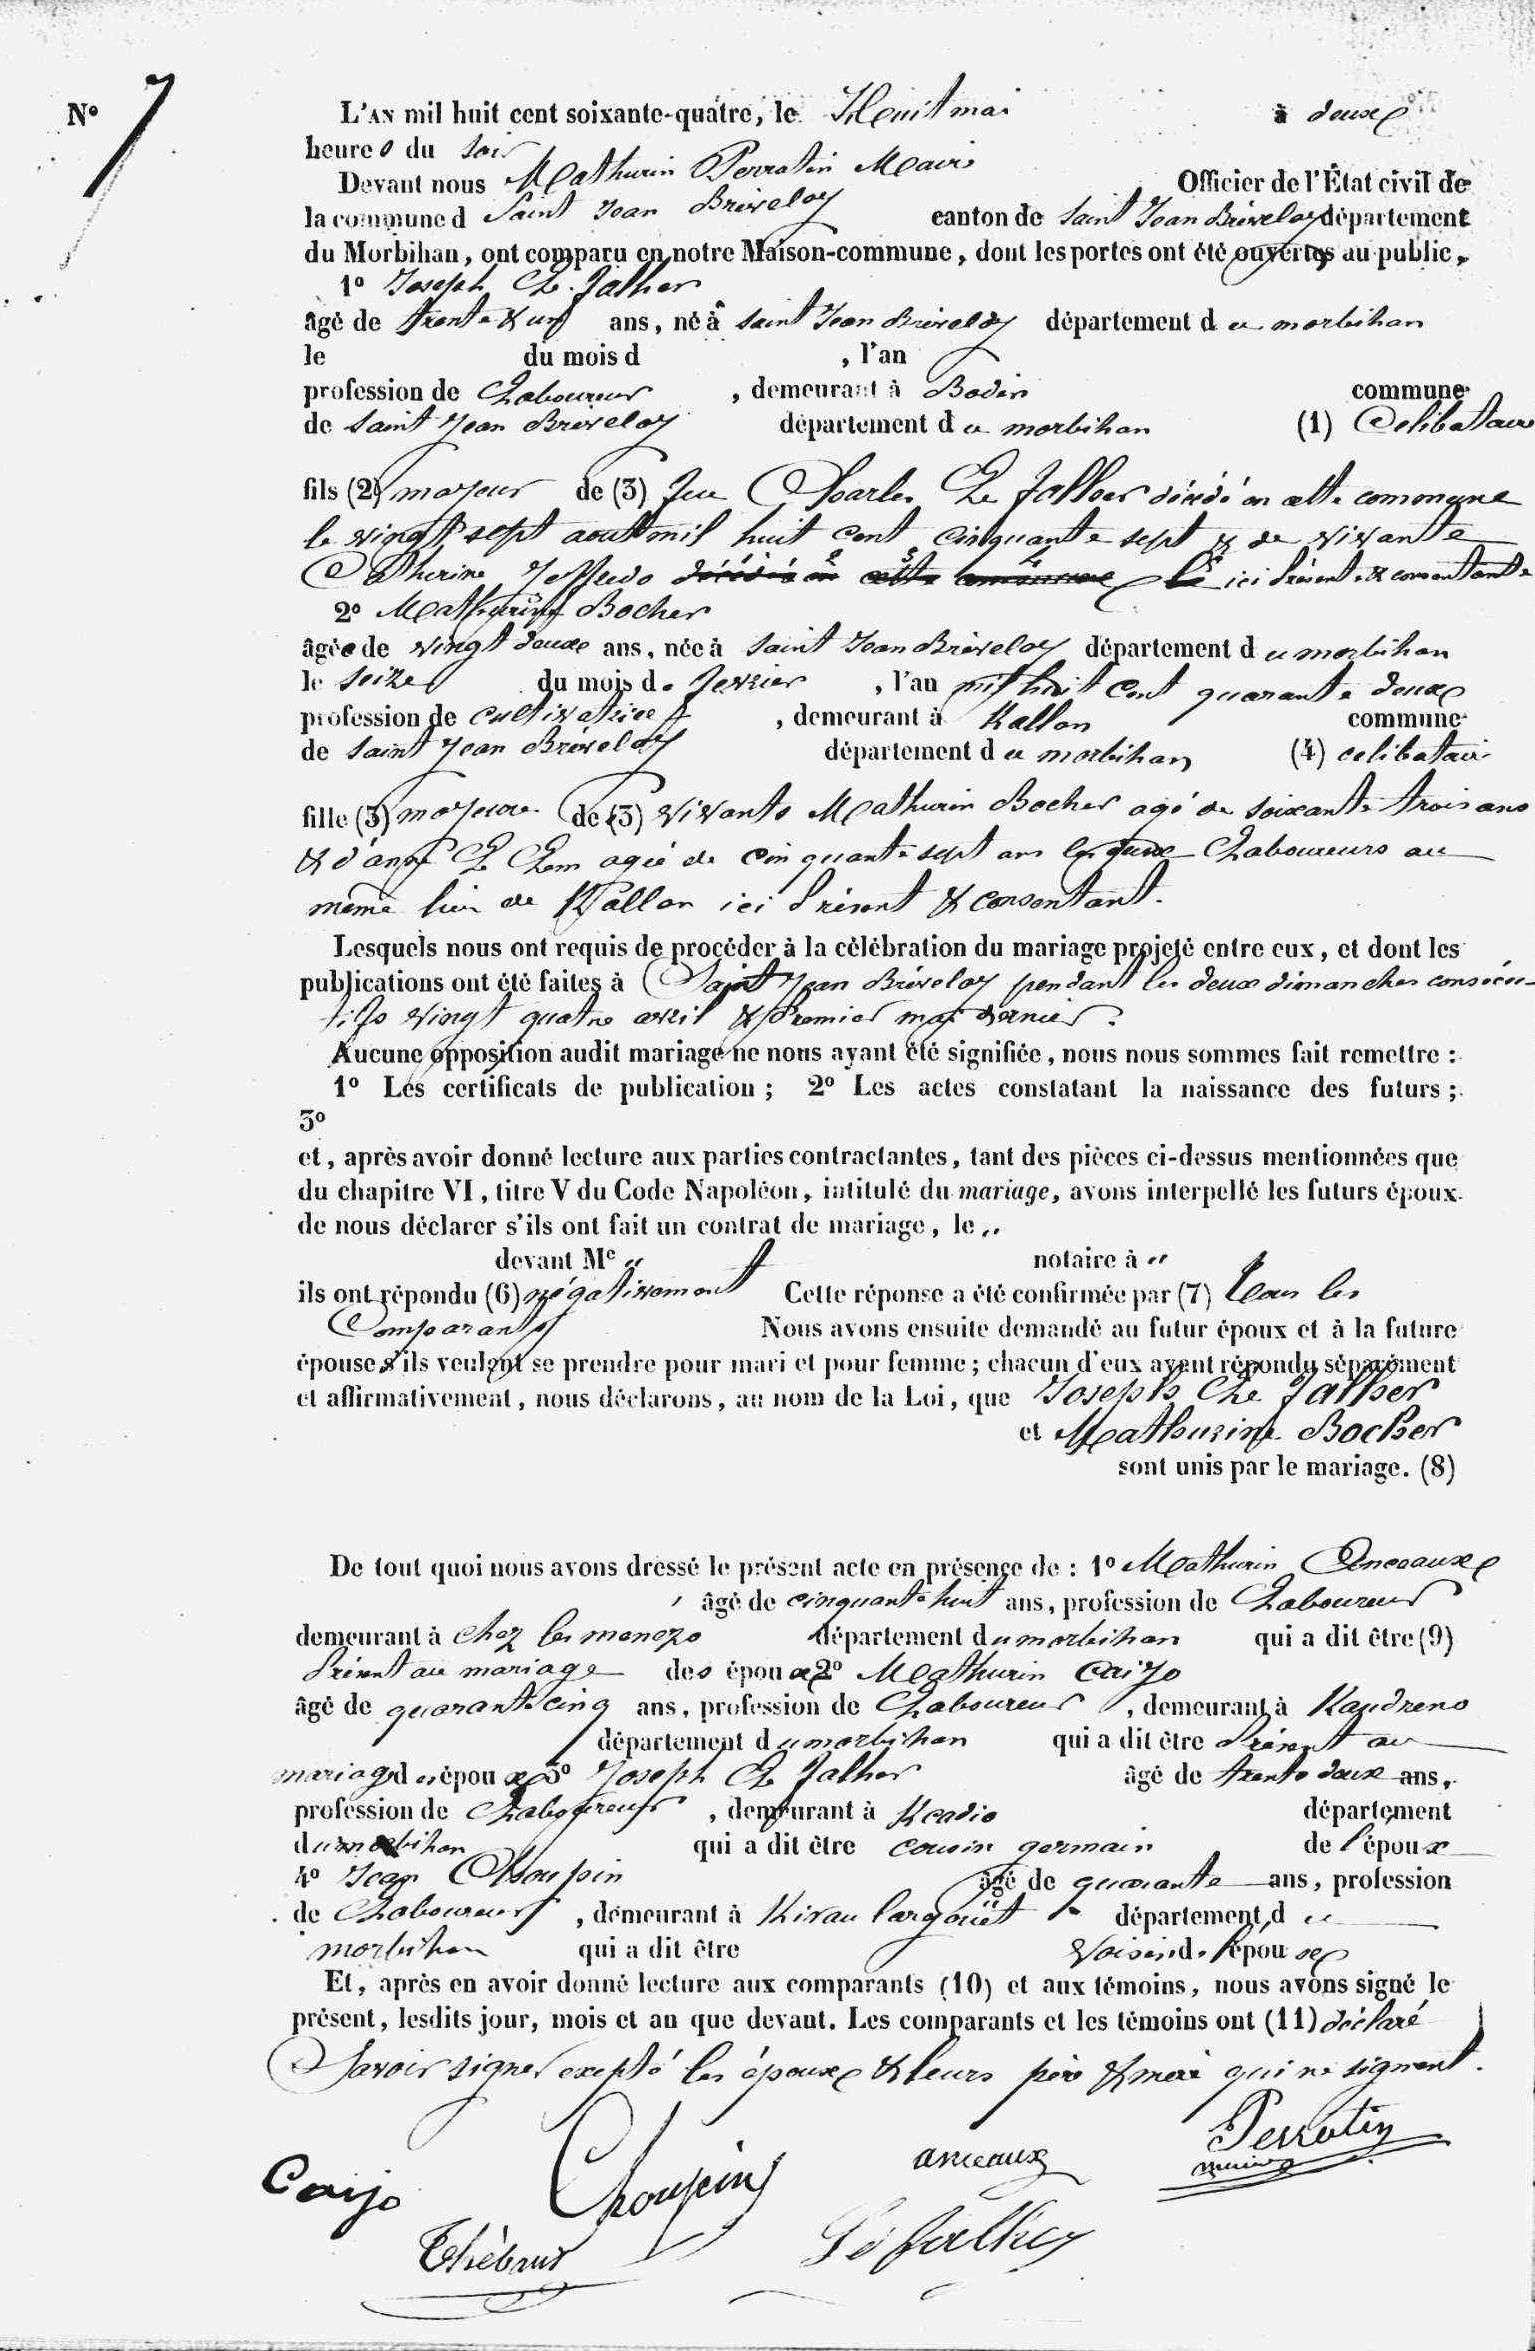 N° 7
L'AN mil huit cent soixante-quatre, le Huit mai à deux
heures du soir
Devant nous Mathurin Perrotin Maire Officier de l'État civil de
la commune d Saint Jean Brévelay canton de Saint Jean Brévelay département
du Morbihan, ont comparu en notre Maison-commune, dont les portes ont été ouvertes au public,
1° Joseph Le Jalher
âgé de trente & un ans, né à saint Jean Brévelay département du morbihan
le du mois d , l'an
profession de Laboureur , demeurant à Bodin commune
de saint Jean Brévelay département du morbihan (1) Celibataire
fils (2) majeur de (3) feu Charles Le Jallher décédé en cette commune
le vingt sept aout mil huit cent cinquante sept & de vivante
Catherine Joffredo décédée en cette commune le ici présente & consentante
2° Mathurine Bocher
âgée de vingt deux ans, née à saint Jean Brévelay département du morbihan
le seize du mois de fevrier , l'an mil huit cent quarante deux
profession de cultivatrice , demeurant à Kallon commune
de saint Jean Brévelay département du morbihan (4) celibataire
fille (5) majeure de (3) vivants Mathurin Bocher agé de soixante trois ans
& d'anne Le Clem agée de cinquante sept ans les deux Laboureurs au
même lieu de Kallon ici présent & consentant.
Lesquels nous ont requis de procéder à la célébration du mariage projeté entre eux, et dont les
publications ont été faites à Saint Jean Brévelay pendant les deux dimanches consécu-
tifs vingt quatre avril & premier mai dernier.
Aucune opposition audit mariage ne nous ayant été signifiée, nous nous sommes fait remettre :
1° Les certificats de publication ; 2° Les actes constatant la naissance des futurs ;
3°
et, après avoir donné lecture aux parties contractantes, tant des pièces ci-dessus mentionnées que
du chapitre VI, titre V du Code Napoléon, intitulé du mariage, avons interpellé les futurs époux
de nous déclarer s'ils ont fait un contrat de mariage, le "
devant Me " notaire à "
ils ont répondu (6) négativement Cette réponse a été confirmée par (7) tous les
Comparants Nous avons ensuite demandé au futur époux et à la future
épouse s'ils veulent se prendre pour mari et pour femme ; chacun d'eux ayant répondu séparément
et affirmativement, nous déclarons, au nom de la Loi, que Joseph Le Jalher
et Mathurine Bocher
sont unis par le mariage. (8)
De tout quoi nous avons dressé le présent acte en présence de : 1° Mathurin Anceaux
âgé de cinquante huit ans, profession de Laboureur
demeurant à chez les menezo département du morbihan qui a dit être (9)
Présent au mariage des époux 2° Mathurin Caijo
âgé de quarante cinq ans, profession de Laboureur , demeurant à Kaudreno
département du morbihan qui a dit être Présent au
mariage des époux 3° Joseph Le Jalher âgé de trente deux ans,
profession de Laboureur , demeurant à Kcadio département
du morbihan qui a dit être cousin germain de l'époux
4° Jean Choupin âgé de quarante ans, profession
de Laboureur , demeurant à Kirau largoüet département du
morbihan qui a dit être voisin de l'époux
Et, après en avoir donné lecture aux comparants (10) et aux témoins, nous avons signé le
présent, lesdits jour, mois et an que devant. Les comparants et les témoins ont (11) déclaré
Savoir signer exepté les époux & leurs père & mère qui ne signent.
Caijo Choupin anceaux Perrotin
maire
Thébaud Le Jalher